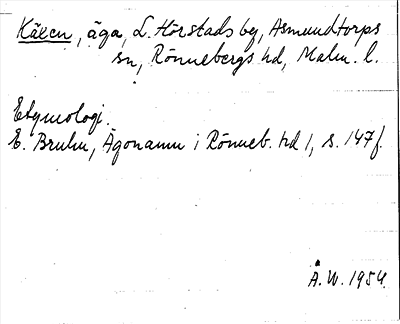 Käxen, äga, L. Hörstads by, Asmundtorps
sn, Rönnebergs hd, Malm. l.
Etymologi.
E. Bruhn, Ägonamn i Rönneb. hd 1, s. 147 f.
Å. W. 1954.